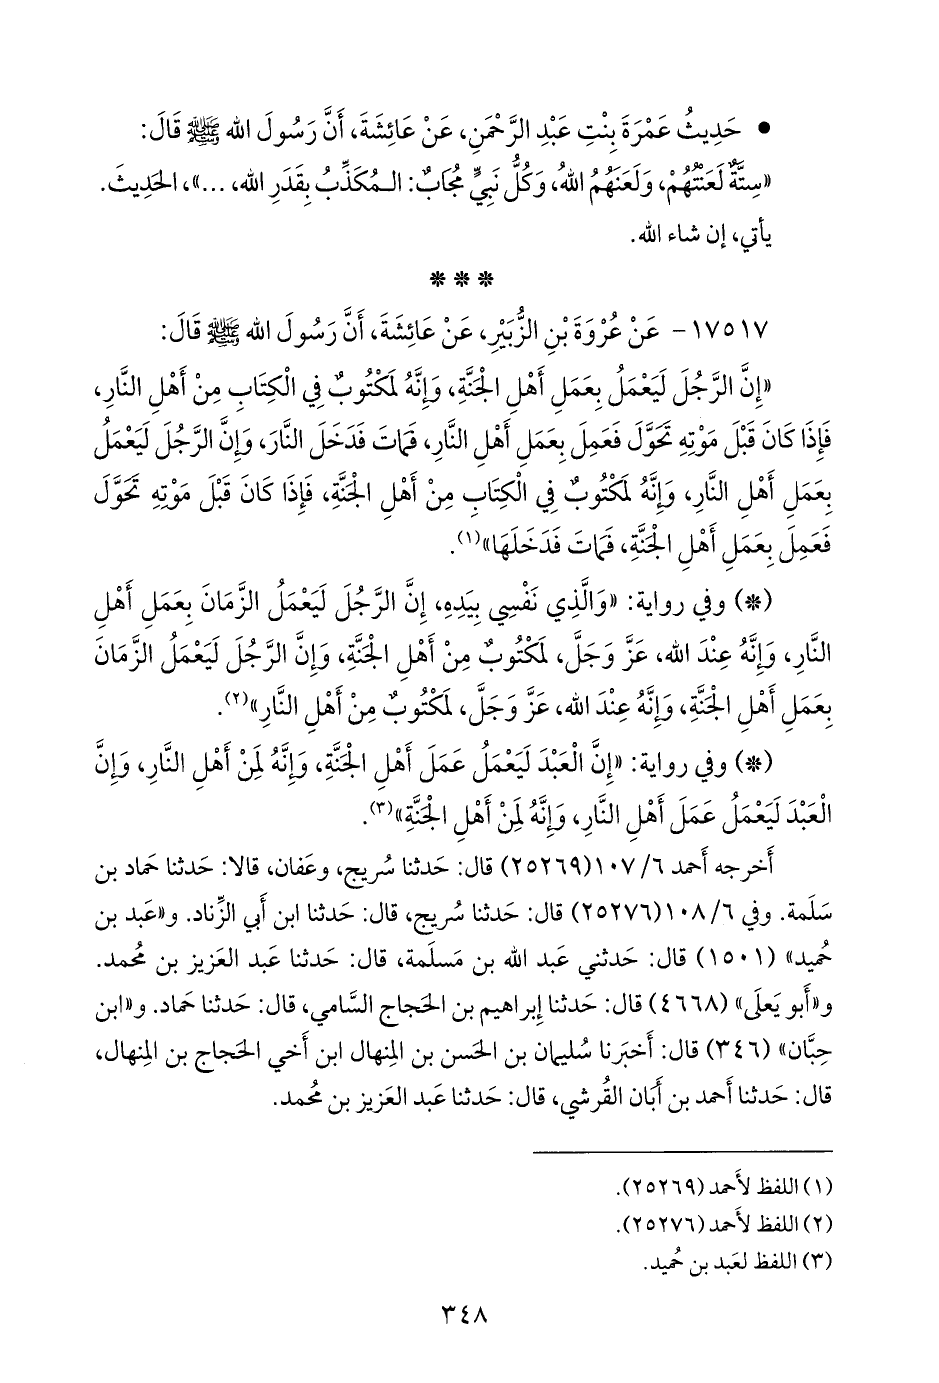 • حَدِيثُ عَمْرَةَ بِنْتِ عَبْدِ الرَّحْمَنِ، عَنْ عَائِشَةَ، أَنَّ رَسُولَ الله ﷺ قَالَ:
«سِتَّةٌ لَعَنْتُهُمْ، وَلَعَنَهُمُ اللهُ، وَكُلُّ نَبِيٍّ مُجَابٌ: الـمُكَذِّبُ بِقَدَرِ الله، ...»، الحَدِيثَ.
يأتي، إن شاء الله.
* * *
١٧٥١٧ - عَنْ عُرْوَةَ بْنِ الزُّبَيْرِ، عَنْ عَائِشَةَ، أَنَّ رَسُولَ الله ﷺ قَالَ:
«إِنَّ الرَّجُلَ لَيَعْمَلُ بِعَمَلِ أَهْلِ الْجَنَّةِ، وَإِنَّهُ لَمَكْتُوبٌ فِي الْكِتَابِ مِنْ أَهْلِ النَّارِ،
فَإِذَا كَانَ قَبْلَ مَوْتِهِ تَحَوَّلَ فَعَمِلَ بِعَمَلِ أَهْلِ النَّارِ، فَمَاتَ فَدَخَلَ النَّارَ، وَإِنَّ الرَّجُلَ لَيَعْمَلُ
بِعَمَلِ أَهْلِ النَّارِ، وَإِنَّهُ لَمَكْتُوبٌ فِي الْكِتَابِ مِنْ أَهْلِ الْجَنَّةِ، فَإِذَا كَانَ قَبْلَ مَوْتِهِ تَحَوَّلَ
فَعَمِلَ بِعَمَلِ أَهْلِ الْجَنَّةِ، فَمَاتَ فَدَخَلَهَا»(١).
(*) وفي رواية: «وَالَّذِي نَفْسِي بِيَدِهِ، إِنَّ الرَّجُلَ لَيَعْمَلُ الزَّمَانَ بِعَمَلِ أَهْلِ
النَّارِ، وَإِنَّهُ عِنْدَ الله، عَزَّ وَجَلَّ، لَمَكْتُوبٌ مِنْ أَهْلِ الْجَنَّةِ، وَإِنَّ الرَّجُلَ لَيَعْمَلُ الزَّمَانَ
بِعَمَلِ أَهْلِ الْجَنَّةِ، وَإِنَّهُ عِنْدَ الله، عَزَّ وَجَلَّ، لَمَكْتُوبٌ مِنْ أَهْلِ النَّارِ»(٢).
(*) وفي رواية: «إِنَّ الْعَبْدَ لَيَعْمَلُ عَمَلَ أَهْلِ الْجَنَّةِ، وَإِنَّهُ لَمِنْ أَهْلِ النَّارِ، وَإِنَّ
الْعَبْدَ لَيَعْمَلُ عَمَلَ أَهْلِ النَّارِ، وَإِنَّهُ لَمِنْ أَهْلِ الْجَنَّةِ»(٣).
أَخرجه أَحمد ٦/ ١٠٧(٢٥٢٦٩) قال: حَدثنا سُريج، وعَفان، قالا: حَدثنا حَماد بن
سَلَمة. وفي ٦/ ١٠٨(٢٥٢٧٦) قال: حَدثنا سُريج، قال: حَدثنا ابن أَبي الزِّناد. و«عَبد بن
حُميد» (١٥٠١) قال: حَدثني عَبد الله بن مَسلَمة، قال: حَدثنا عَبد العَزيز بن مُحمد.
و«أَبو يَعلَى» (٤٦٦٨) قال: حَدثنا إِبراهيم بن الحَجاج السَّامي، قال: حَدثنا حَماد. و«ابن
حِبَّان» (٣٤٦) قال: أَخبَرنا سُليمان بن الحَسن بن المِنهال ابن أَخي الحَجاج بن المِنهال،
قال: حَدثنا أَحمد بن أَبَان القُرشي، قال: حَدثنا عَبد العَزيز بن مُحمد.
(١) اللفظ لأَحمد (٢٥٢٦٩).
(٢) اللفظ لأَحمد (٢٥٢٧٦).
(٣) اللفظ لعَبد بن حُميد.
٣٤٨